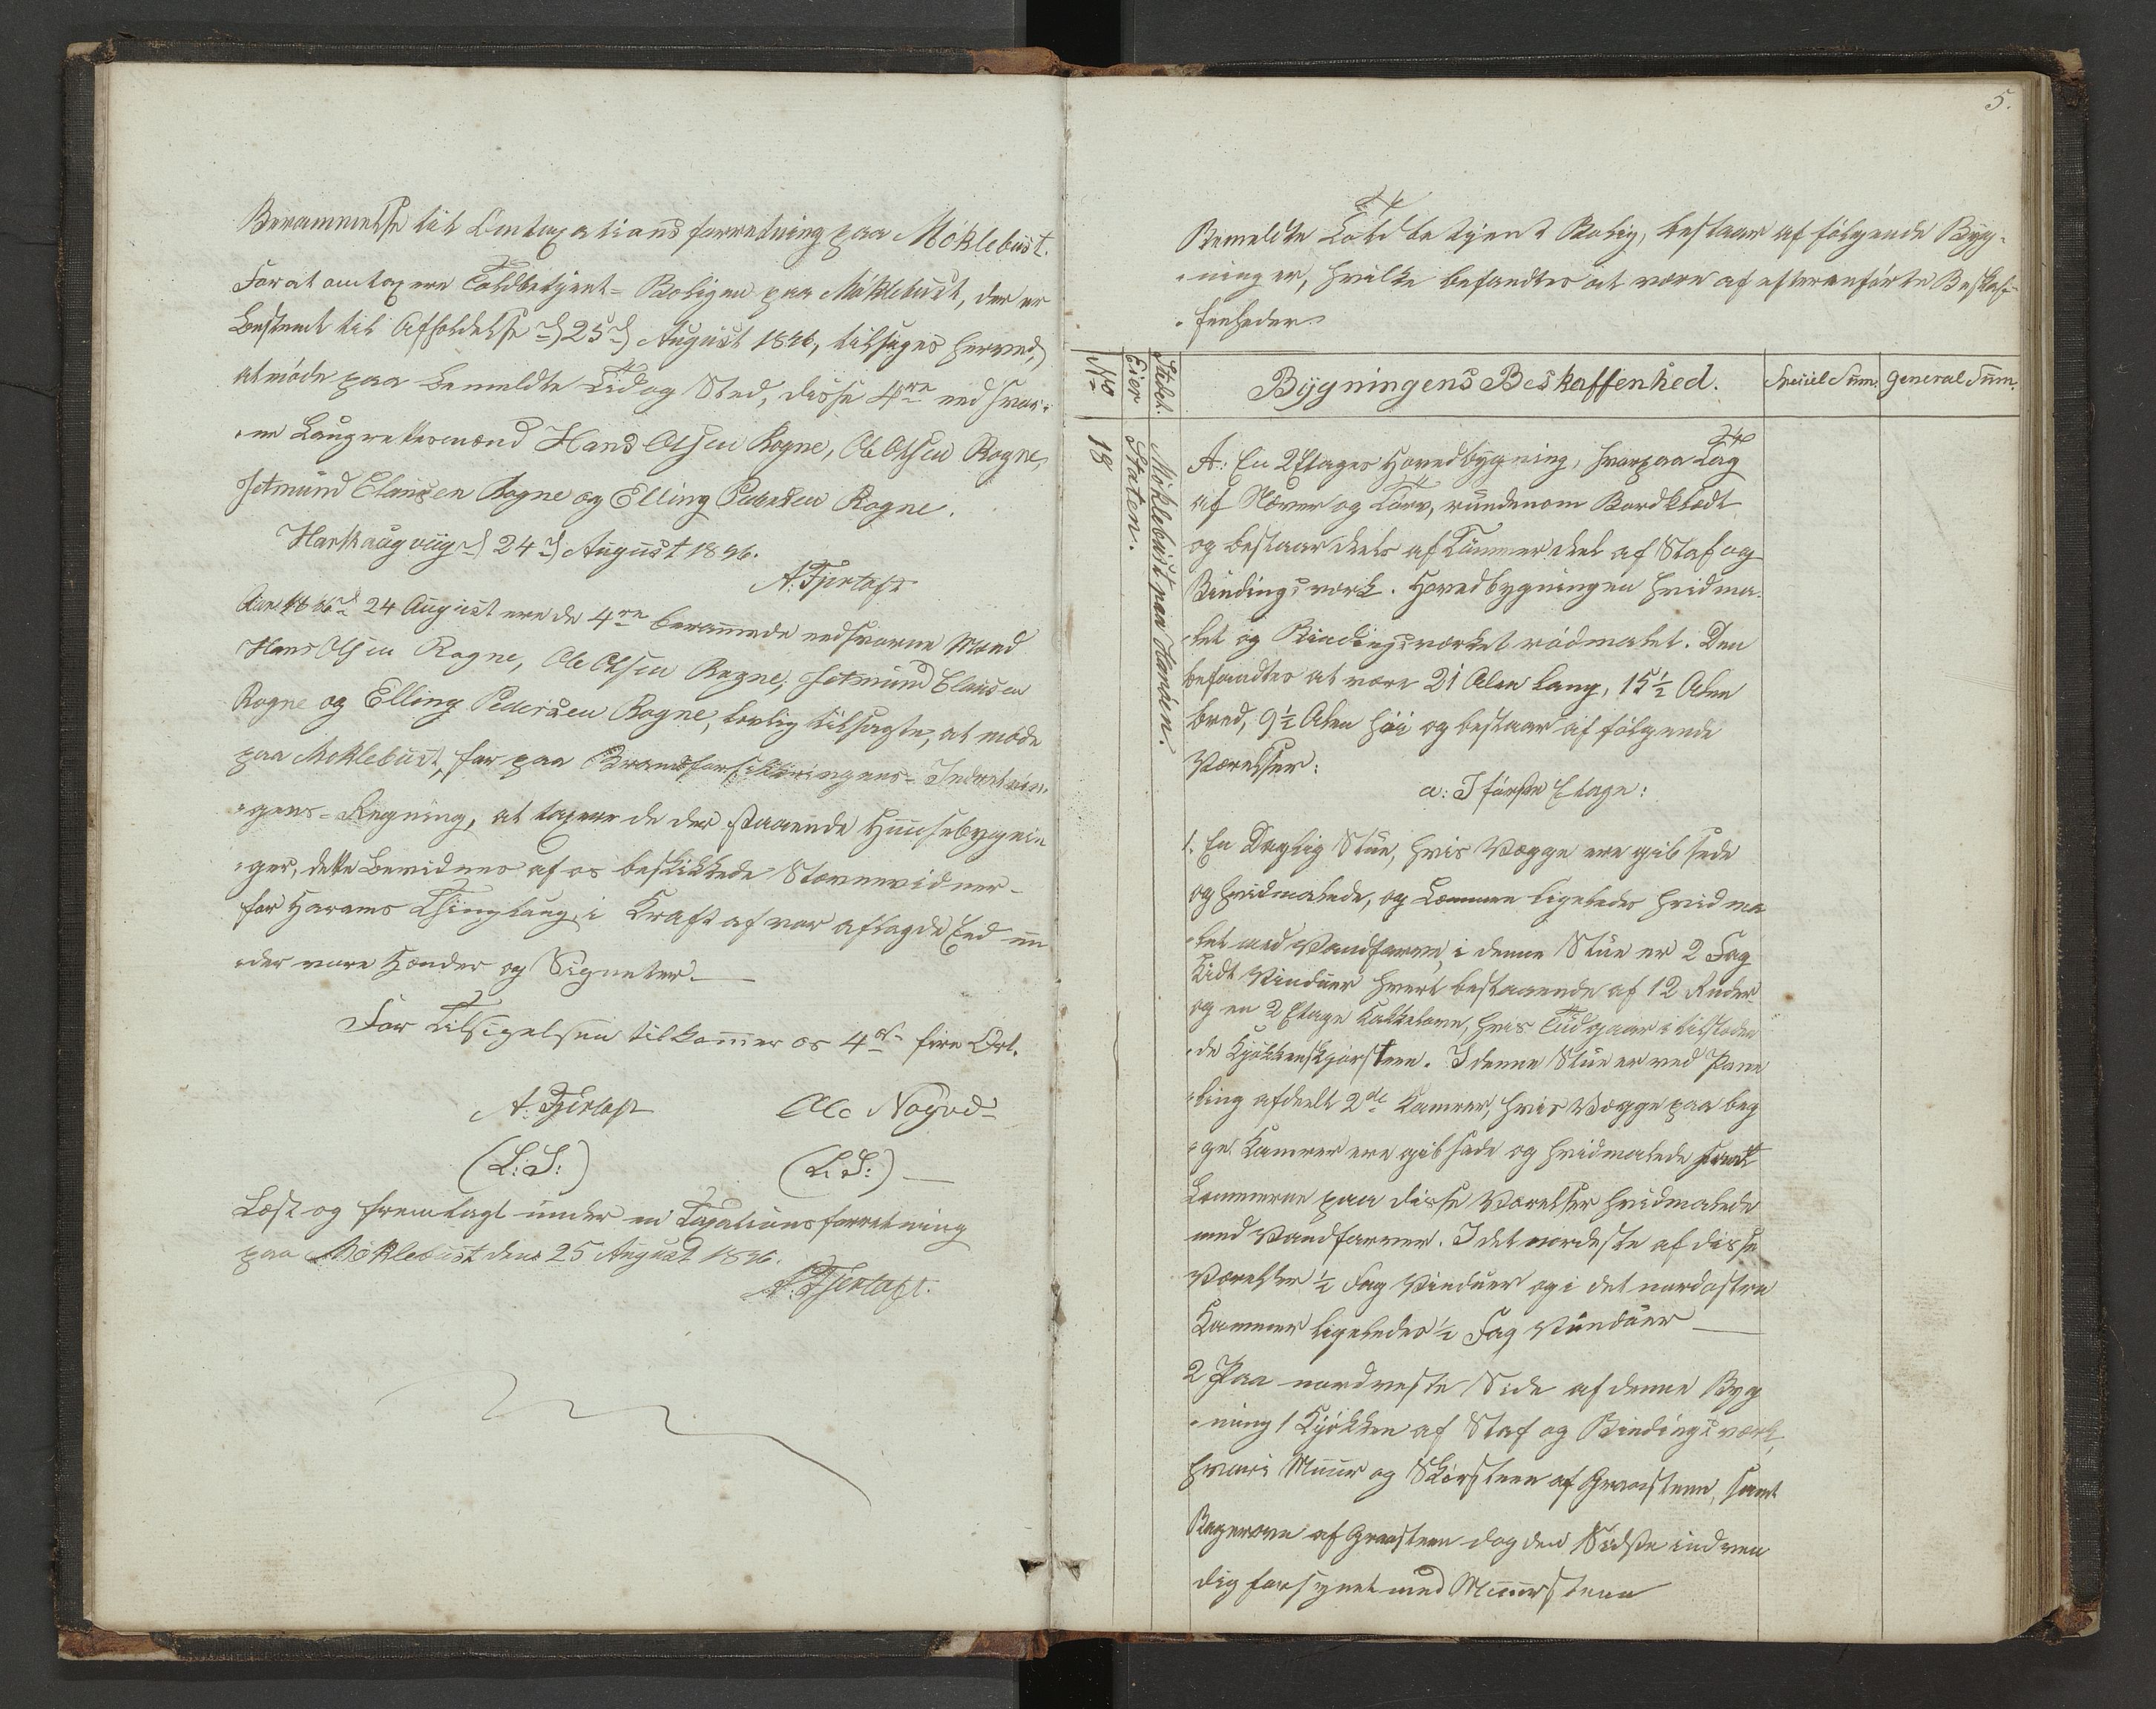 Berammelse til Omtaxationsforretning paa Möklebust.
For at omtaxere Toldbetjent-Boligen paa Möklebust, der er
bestemt til Afholdelse d. 25de August 1846, tilsiges herved,
at møde paa bemeldte Tid og Sted, disse 4re eedsvor-
ne Laugrettesmænd Hans Olsen Rogne, Ole Olsen Rogne,
Jetmund Clausen Rogne og Elling Pedersen Rogne.
Harkaugviig d. 24de August 1846.
A. Fjertoft
24 August ere de 4re berammede eedsvorne Mænd
Hans Olsen Rogne, Ole Olsen Rogne, Jetmund Clausen
Rogne og Elling Pedersen Rogne, lovlig tilsagte, at møde
paa Moklebust, for paa Brandforsikkringens-Indretnin-
gens-Regning, at taxere de der staaende Huusebygnin
ger, dette bevidnes af os beskikkede Stævnevidner
for Harams Thinglaug, i Kraft af vor aflagde Eed un
der vore Hænder og Signeter.
For Tilsigelsen tilkommer os 4 fire Ort.
A. Fjertoft Ole Nogvad
(L:S:) (L:S:)
Læst og fremlagt under en Taxationsforretning
paa Möklebust den 25 August 1846.
A. Fjertoft.
5.
Bemeldte Toldbetjent Bolig, bestaar af følgende Byg-
ninger, hvilke befandtes at være af efteranførte Beskaf-
fenheder
No Eier Stedet. Bygningens Beskaffenhed. Speciel Sum. General Sum.
18 Staten. Möklebust paa Haröen.
A: En 2 Etages Hovedbygning, hvorpaa Tag
af Næver og Torv, rundenom Bordklædt
og bestaar deels af Tømmer deel af Staf og
Bindingsværk. Hovedbygningen hvidma-
let og Bindingsværket rødmalet. Den
befandtes at være 21 Alen lang, 15½ Alen
bred, 9½ Alen høi og bestaar af følgende
Værelser:
a: I første Etage:
1. En Daglig Stue, hvis Vægge ere gibsede
og hvidmalede, og Lemmen ligeledes hvidma
let med Vandfarve, i denne Stue er 2 Fag
Vinduer hvert bestaaende af 12 Ruder
og en 2 Etage Kakkelovn, hvis gaar i tilstøden
de Kjøkkenskjorsteen. I denne Stue er ved Pane
ling afdeelt 2de Kamrer, hvis Vægge paa beg
ge Kamrer ere gibsede og hvidmalede samt
Lemmerne paa disse Værelser hvidmalede
med Vandfarver. I det nordeste af disse
Værelser ½ Fag Vinduer og i det nordøstre
Kammer ligeledes ½ Fag Vinduer
2 Paa nordveste Side af denne Byg
ning 1 Kjøkken af Staf og Bindingsværk,
hvori Muur og Skorsteen af Graasteen, samt
Bagerovn af Graasteen dog den Sidste indven
dig forsynet med Muursteen